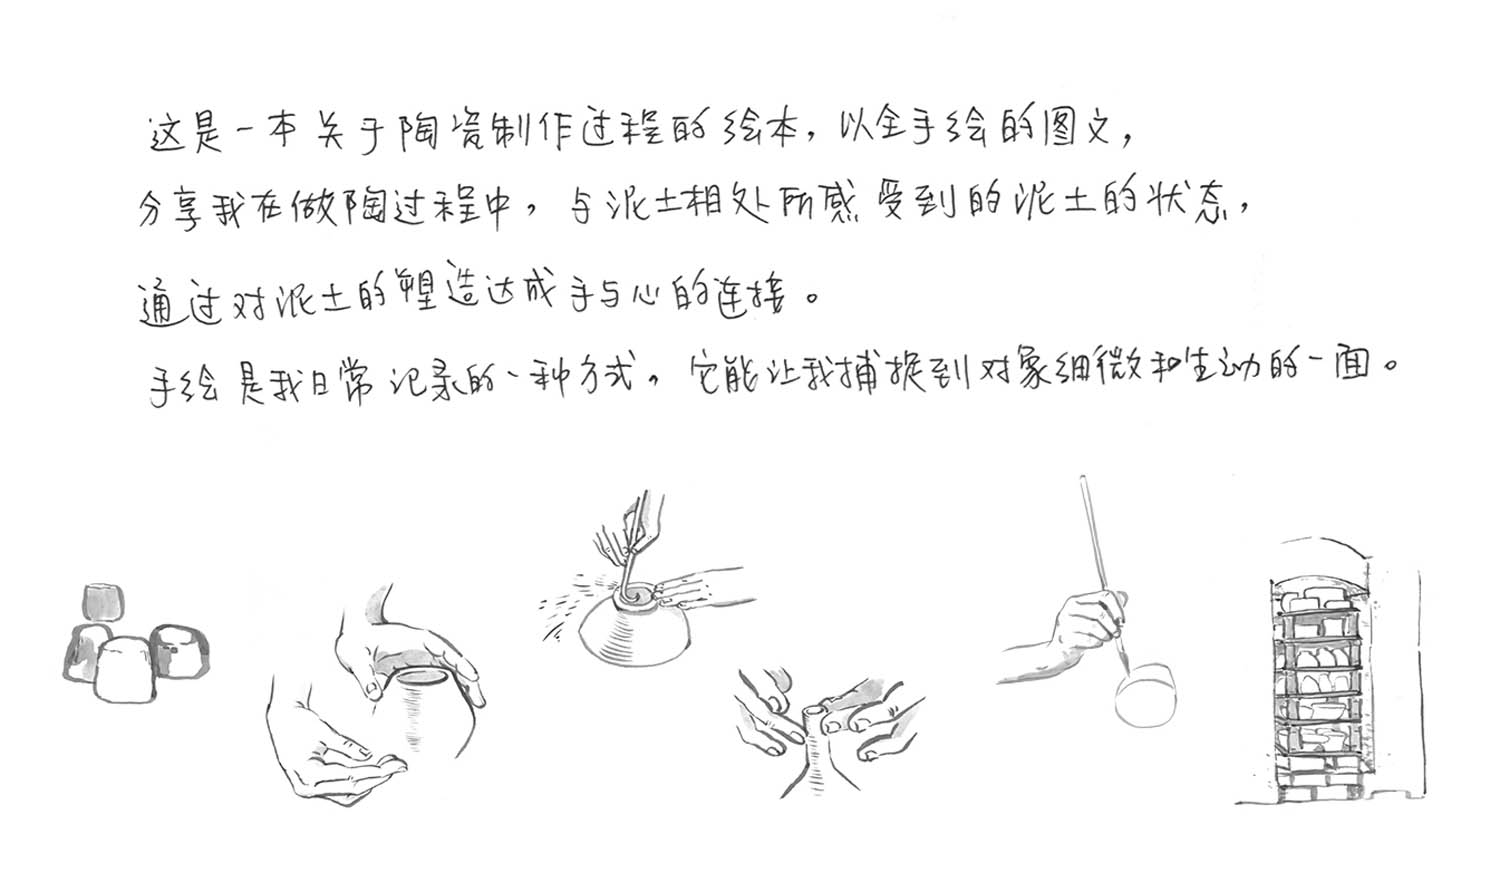 这是一本关于陶瓷制作过程的绘本，以全手绘的图文，
分享我在做陶过程中，与泥土相处所感受到的泥土的状态，
通过对泥土的塑造达成手与心的连接。
手绘是我日常记录的一种方式，它能让我捕捉到对象细微和生动的一面。